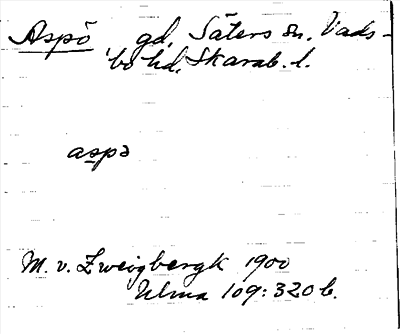 Aspö, gd, Säters sn. Vads-
bo hd, Skarab. l.
aspə
M. v. Zweigbergk 1900
Ulma 109:320 b.